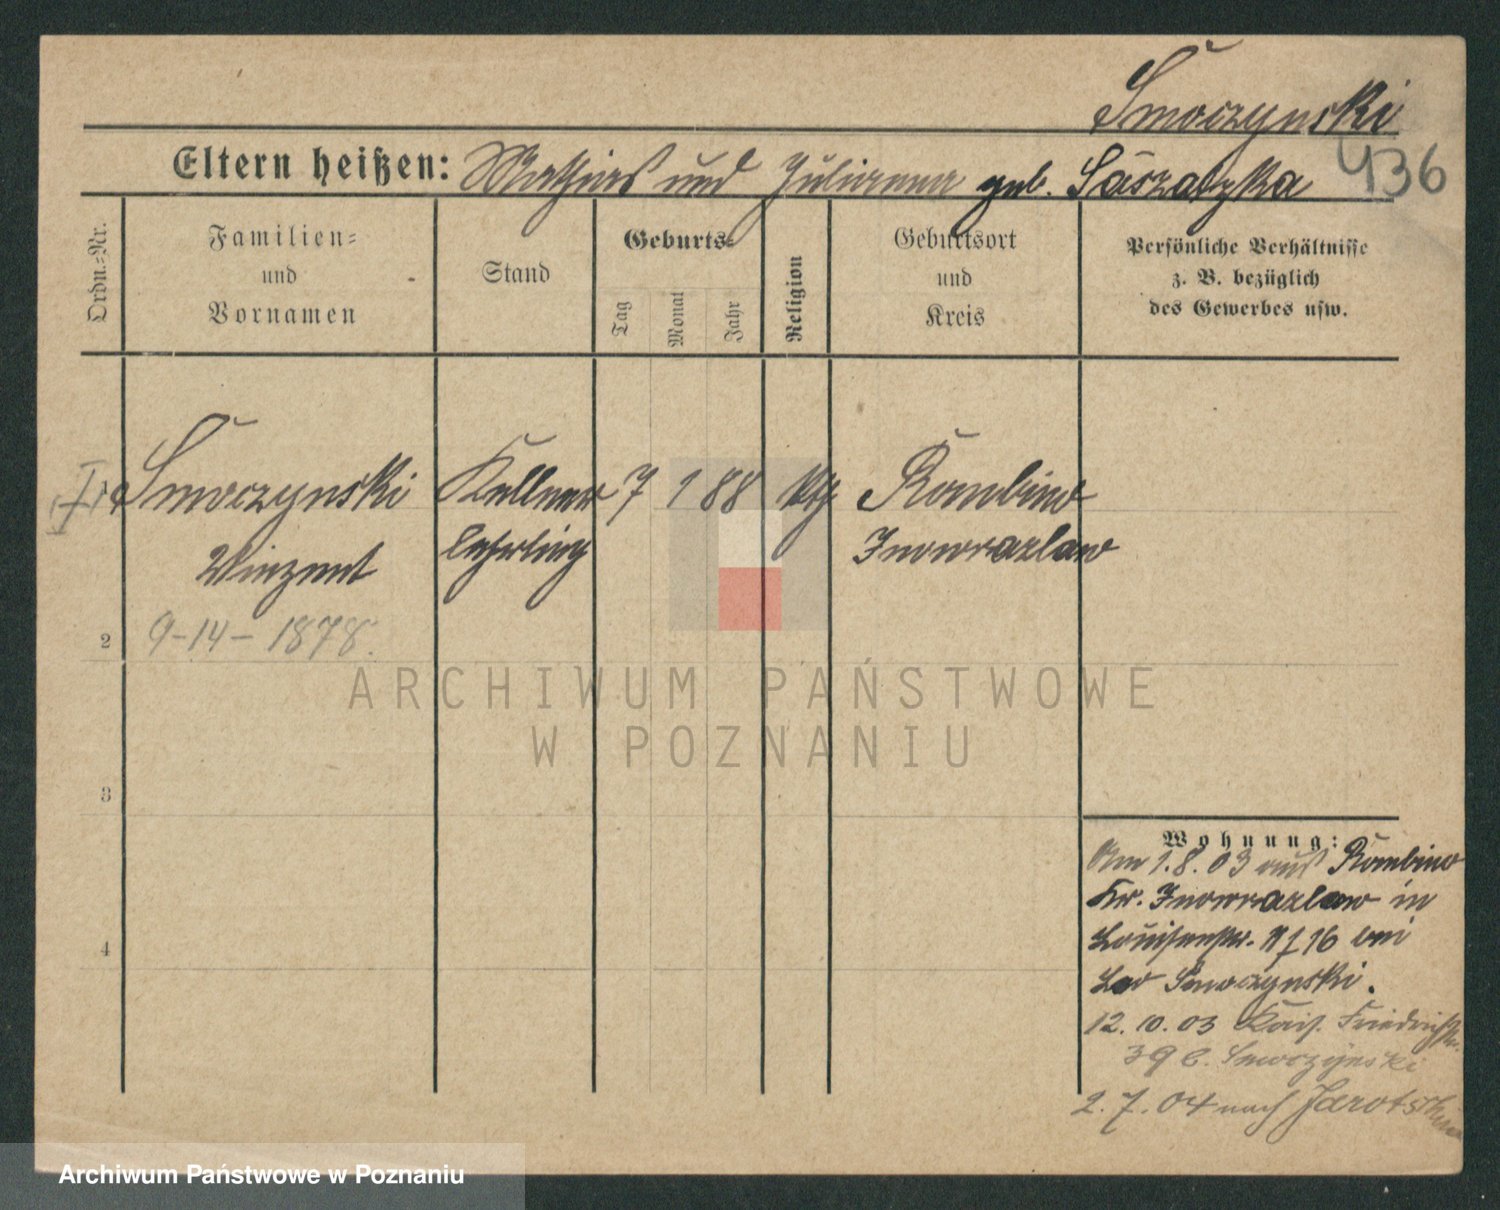 Smoczynski
436
Eltern heißen: Mathias und Julianna geb.
Ordn.-Nr.
Familien-
und
Vornamen
Stand
Geburts-
Tag
Monat
Jahr
Religion
Geburtsort
und
Kreis
Persönliche Verhältnisse
z. B. bezüglich
des Gewerbes usw.
Smoczynski Kellner 7 1 88 kth Rombino
Vinzent lehrling Inowrazlaw
2 9-14-1878.
ARCHIWUM PAŃSTWOWE
W POZNANIU
3
4
Wohnung:
Am 1.8.03 aus Rombino
Kr. Inowrazlaw in
Louisenstr. 16 bei
Leo Smoczynski.
12.10.03 Kais. Friedrichstr.
39 b. Smoczynski
2.7.04 nach Jarotschin
Archiwum Państwowe w Poznaniu